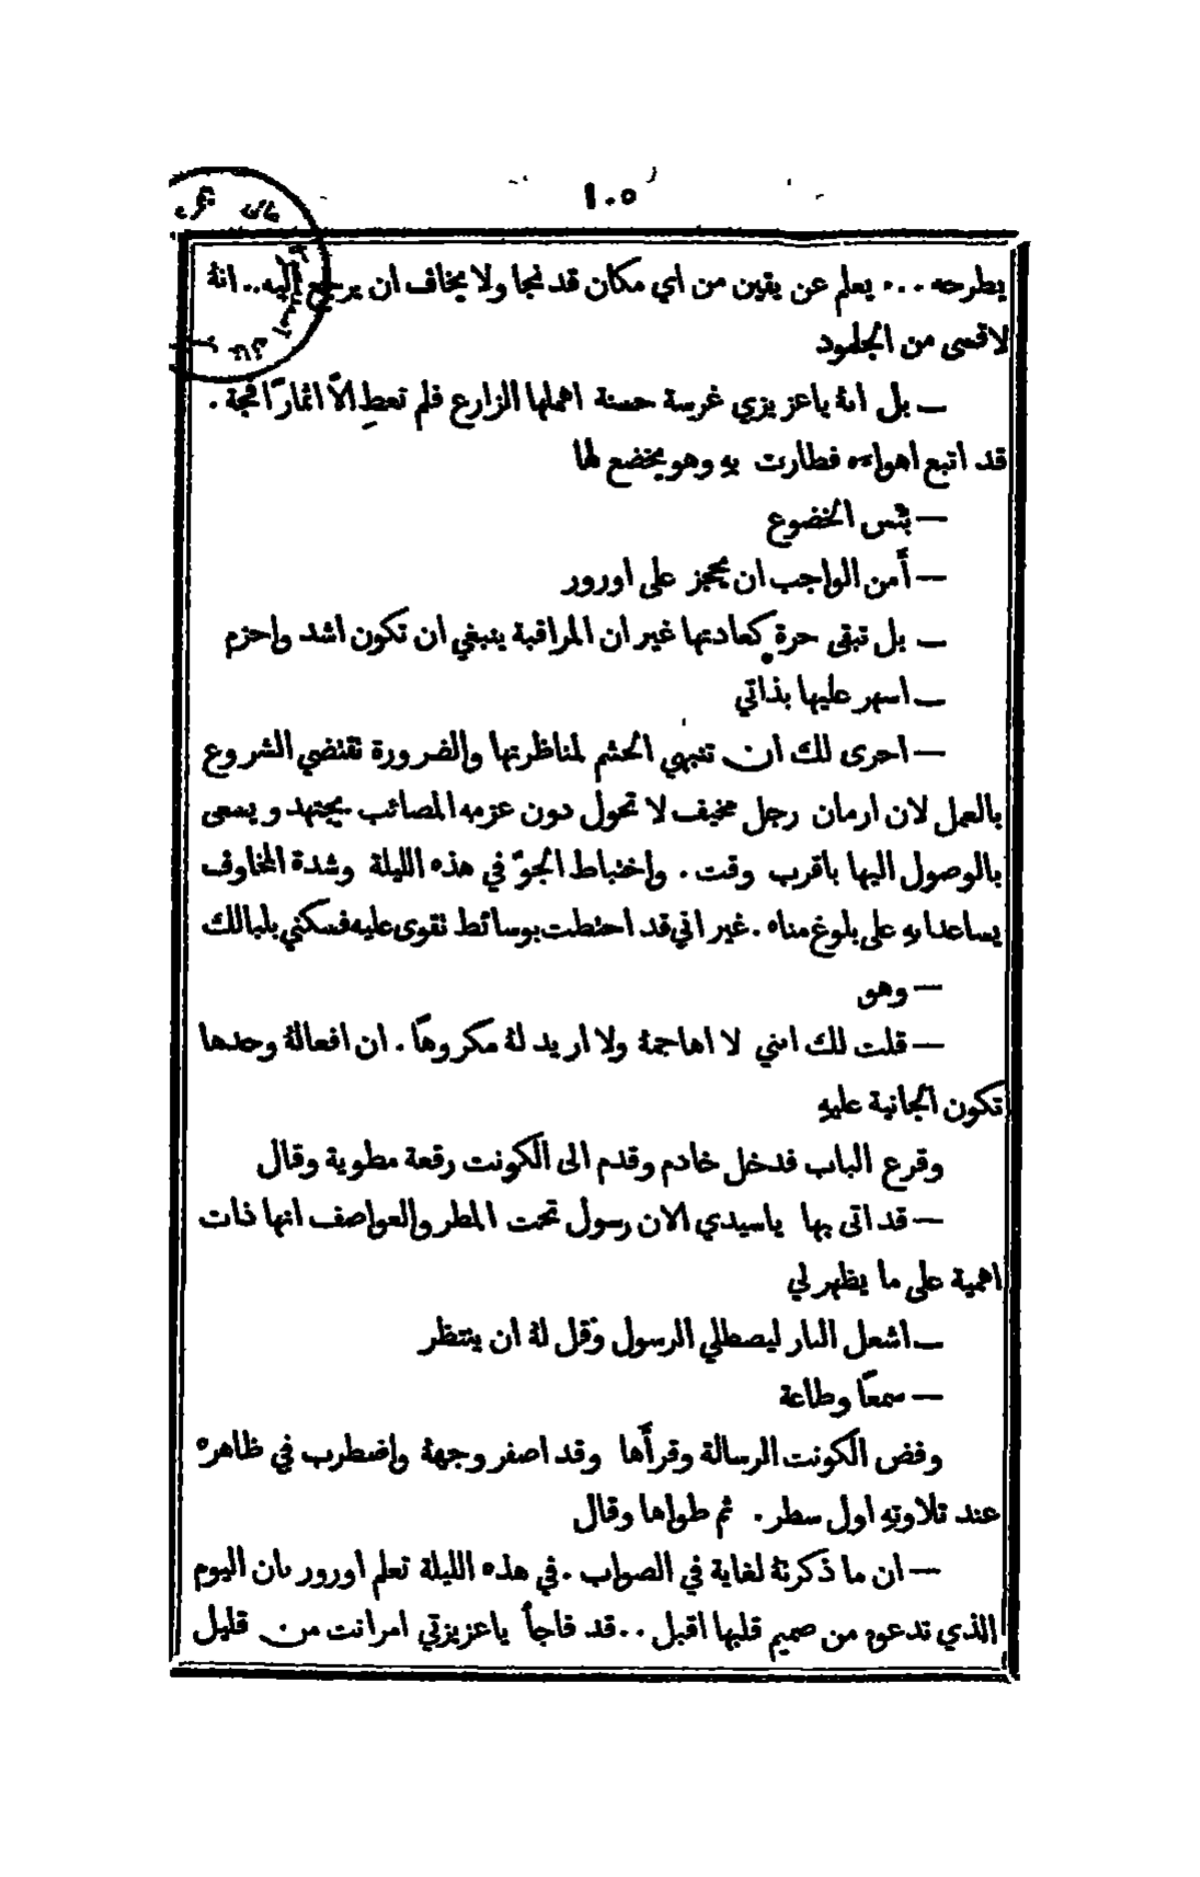 ١٠٥
يطرحه ... يعلم عن يقين من اي مكان قد نجا ولا يخاف ان يرجع اليه.. انهُ
لاقسى من الجلمود
— بل انهُ ياعزيزي غرسة حسنة اهملها الزارع فلم تعطِ الاَّ اثمارًا فجة .
قد اتبع اهواءه فطارت بهِ وهو يخضع لها
— بئس الخضوع
— أَمن الواجب ان يحجز على اورور
— بل تبقى حرة كعادتها غير ان المراقبة ينبغي ان تكون اشد واحزم
— اسهر عليها بذاتي
— احرى لك ان تنبهي الحشم لمناظرتها والضرورة تقتضي الشروع
بالعمل لان ارمان رجل مخيف لا تحول دون عزمه المصائب يجتهد ويسعى
بالوصول اليها باقرب وقت . واختباط الجوّ في هذه الليلة وشدة المخاوف
يساعدانهِ على بلوغ مناه . غير اني قد احتطت بوسائط تقوى عليه فسكني بلبالك
— وهو
— قلت لك انني لا اهاجمهُ ولا اريد لهُ مكروهًا . ان افعالهُ وحدها
تكون الجانية عليهِ
وقرع الباب فدخل خادم وقدم الى الكونت رقعة مطوية وقال
— قد اتى بها ياسيدي الان رسول تحت المطر والعواصف انها ذات
اهمية على ما يظهر لي
— اشعل النار ليصطلي الرسول وقل لهُ ان ينتظر
— سمعًا وطاعة
وفض الكونت الرسالة وقرأَها وقد اصفر وجههُ واضطرب في ظاهره
عند تلاوتهِ اول سطر . ثم طواها وقال
— ان ما ذكرتهُ لغاية في الصواب . في هذه الليلة تعلم اورور بان اليوم
الذي تدعوه من صميم قلبها اقبل .. قد فاجأَ ياعزيزتي امرانت من قليل